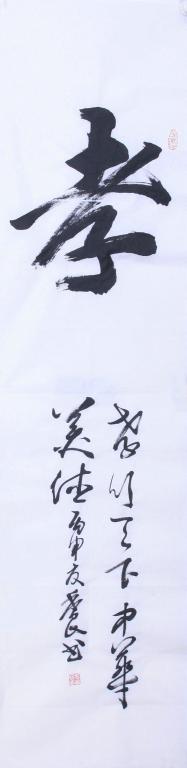 孝
孝行天下中華
美德 丙申 书